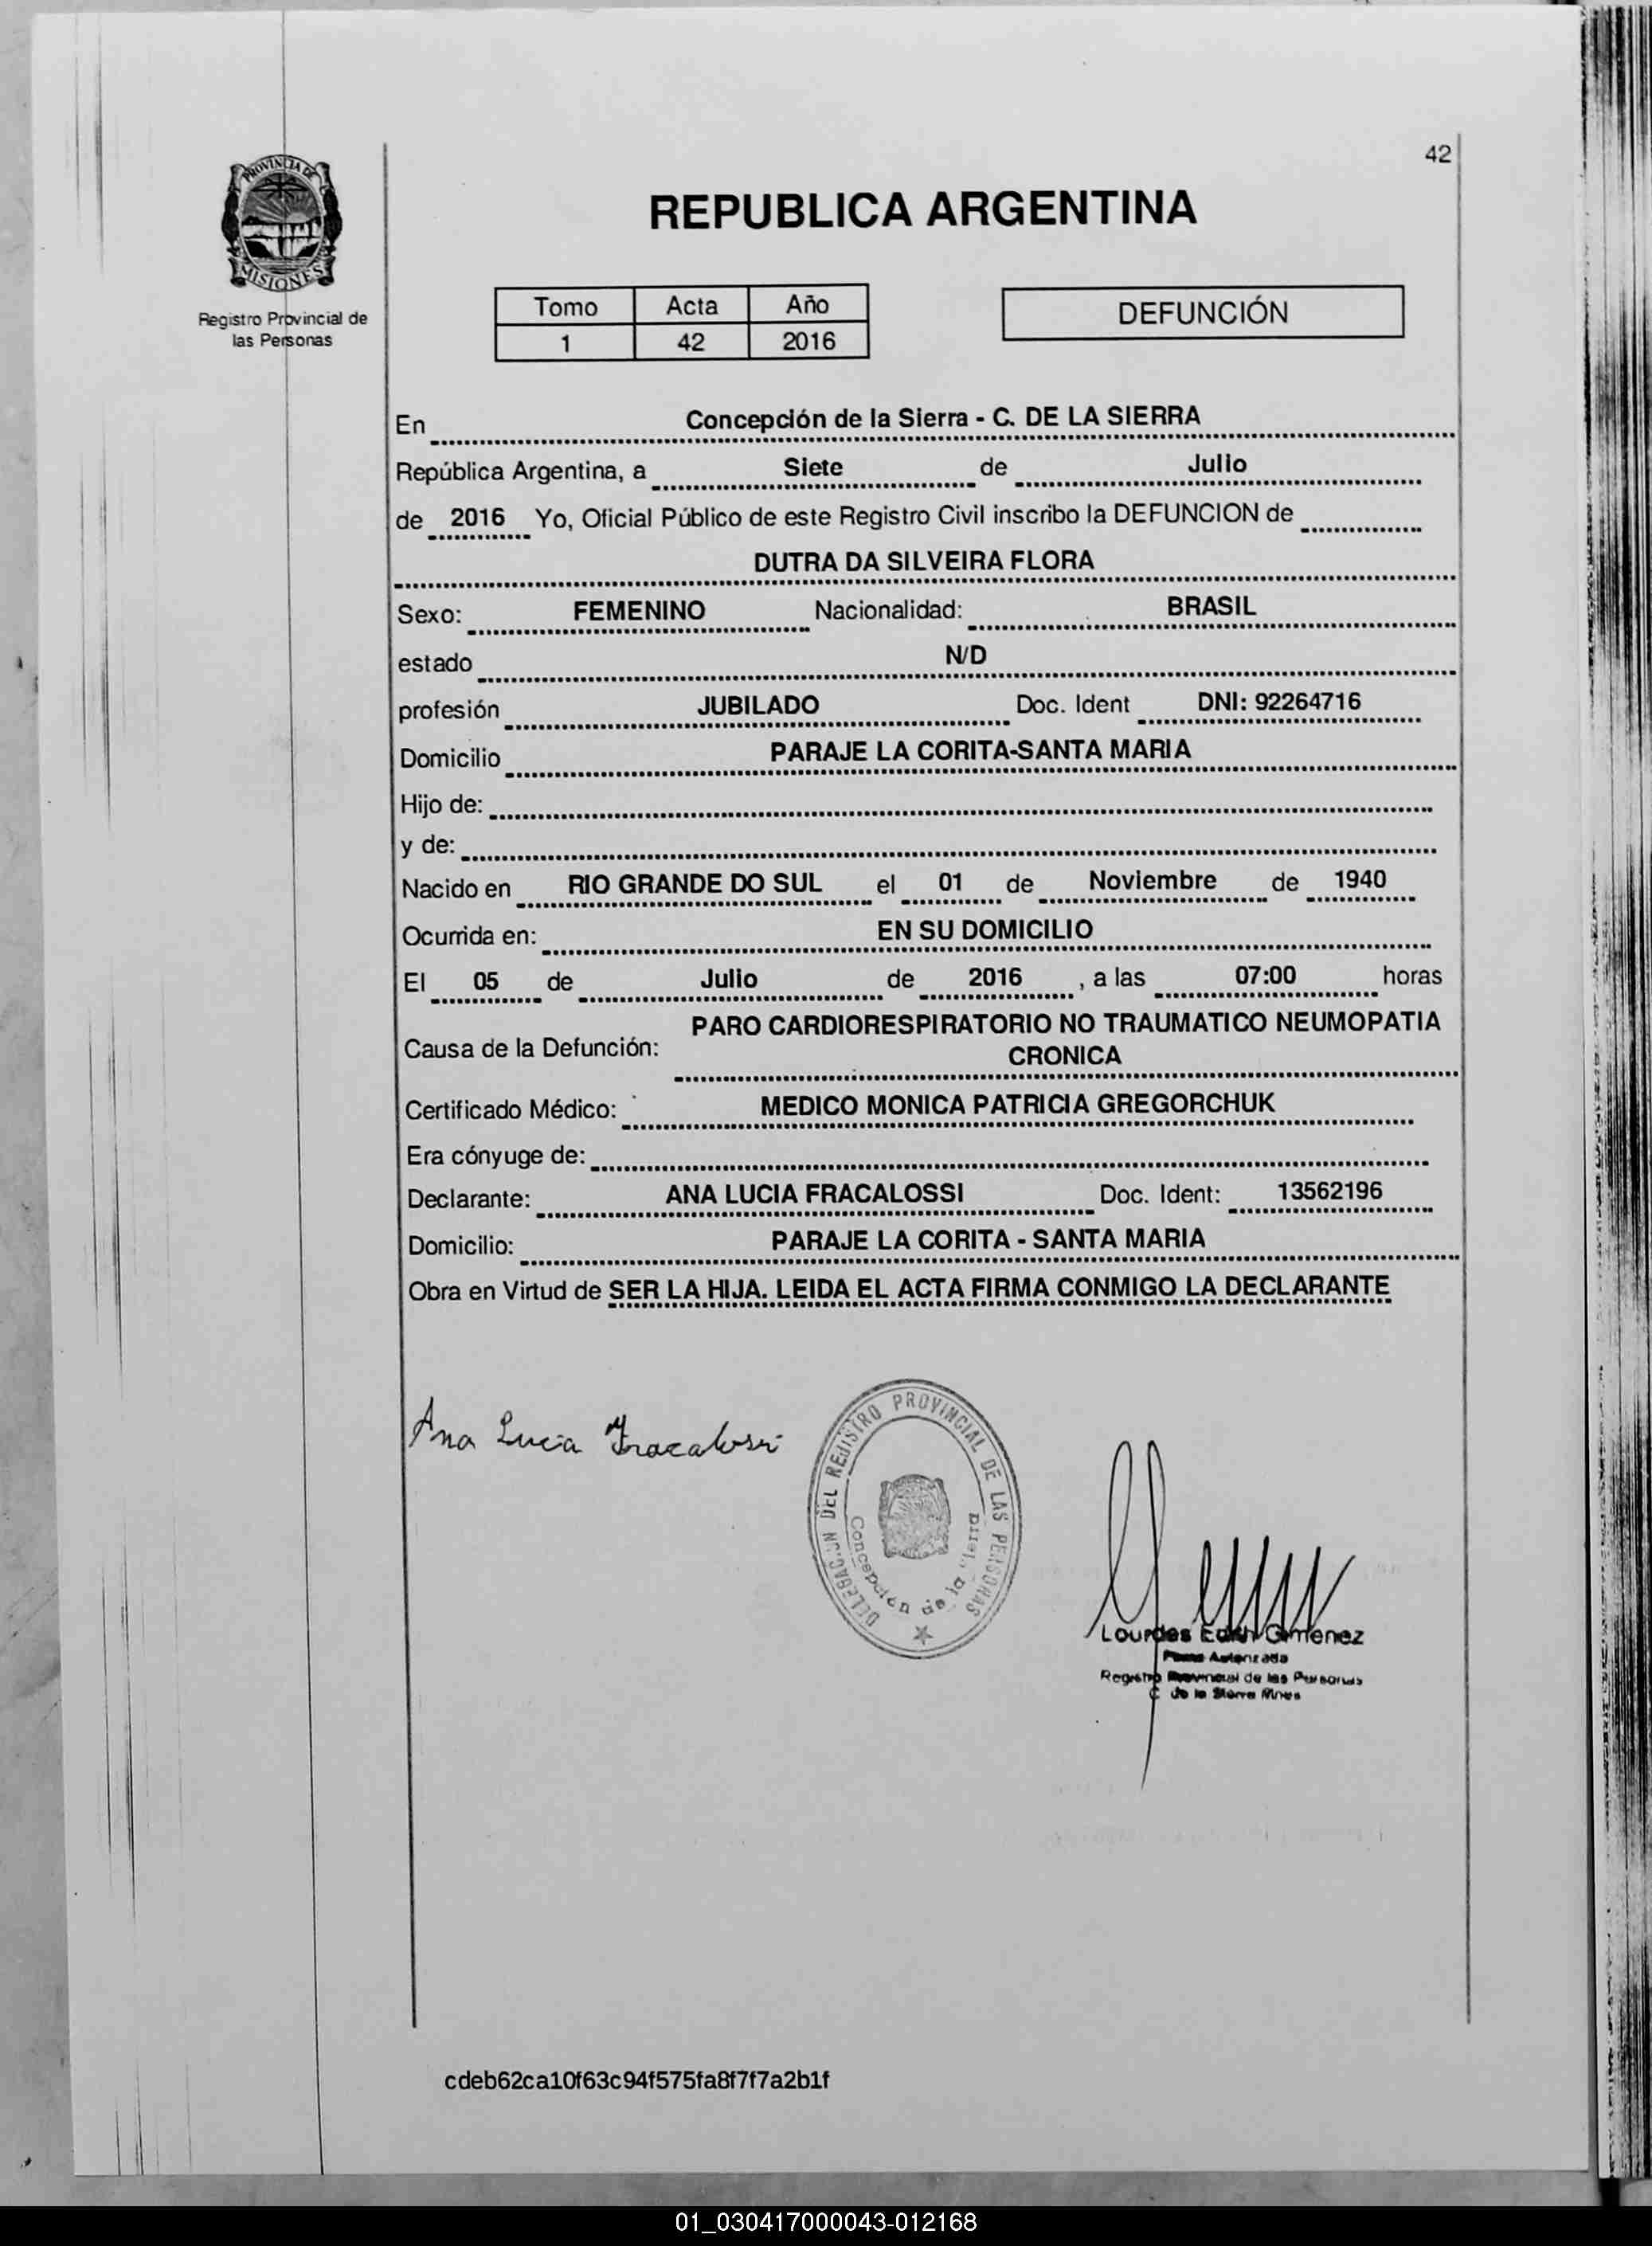 42
PROVINCIA DE
MISIONES
Registro Provincial de
las Personas
REPUBLICA ARGENTINA
Tomo Acta Año
1 42 2016
DEFUNCIÓN
En Concepción de la Sierra - C. DE LA SIERRA
República Argentina, a Siete de Julio
de 2016 Yo, Oficial Público de este Registro Civil inscribo la DEFUNCION de
DUTRA DA SILVEIRA FLORA
Sexo: FEMENINO Nacionalidad: BRASIL
estado N/D
profesión JUBILADO Doc. Ident DNI: 92264716
Domicilio PARAJE LA CORITA-SANTA MARIA
Hijo de:
y de:
Nacido en RIO GRANDE DO SUL el 01 de Noviembre de 1940
Ocurrida en: EN SU DOMICILIO
El 05 de Julio de 2016 , a las 07:00 horas
PARO CARDIORESPIRATORIO NO TRAUMATICO NEUMOPATIA
Causa de la Defunción:
CRONICA
Certificado Médico: MEDICO MONICA PATRICIA GREGORCHUK
Era cónyuge de:
Declarante: ANA LUCIA FRACALOSSI Doc. Ident: 13562196
Domicilio: PARAJE LA CORITA - SANTA MARIA
Obra en Virtud de SER LA HIJA. LEIDA EL ACTA FIRMA CONMIGO LA DECLARANTE
Ana Lucia Fracalossi
DEL REJISTRO PROVINCIAL DE LAS PERSONAS
Concepción de la Sierra
Lourdes Edith Gimenez
Autorizada
Registro Provincial de las Personas
C de la Sierra Mnes
cdeb62ca10f63c94f575fa8f7f7a2b1f
01_030417000043-012168